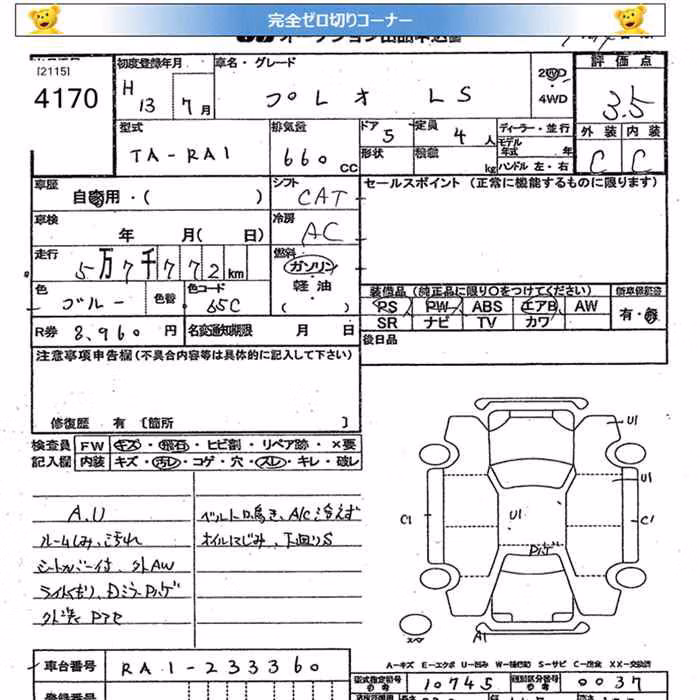 完全ゼロ切りコーナー
[2115]
4170
初度登録年月
H 13 7月
車名・グレード
プレオ LS
2WD
・
4WD
評価点
3.5
外装 内装
C C
型式
TA-RA1
排気量
660 CC
ドア 5
形状
定員 4人
積載 kg
ディーラー・並行
モデル年式 年
ハンドル 左・右
車歴
自家用・( )
シフト
CAT
セールスポイント (正常に機能するものに限ります)
車検
年 月( 日)
冷房
AC
走行
5万7千772km
燃料
ガソリン
軽油
( )
色
ブルー
色替
色コード
65C
装備品(純正品に限り○をつけてください)
PS PW ABS エアB AW
SR ナビ TV カワ
新車保証書
有・無
R券 8,960 円
名変通知期限 月 日
後日品
注意事項申告欄(不具合内容等は具体的に記入して下さい)
修復歴 有〔箇所 〕
検査員
記入欄
FW キズ・飛石・ヒビ割・リペア跡・×要
内装 キズ・汚レ・コゲ・穴・スレ・キレ・破レ
A,U
ルームしみ、汚れ
シートカバー付、外AW
ベルト鳴き、A/C冷えず
オイルにじみ、下回りS
U1
U1
U1
C1
C1
A1
スペア
A-キズ E-エクボ U-凹み W-補修跡 S-サビ C-腐食 XX-交換済
車台番号 RA1-233360
型式指定番号 参考 10745
類別区分番号 参考 0037
登録番号